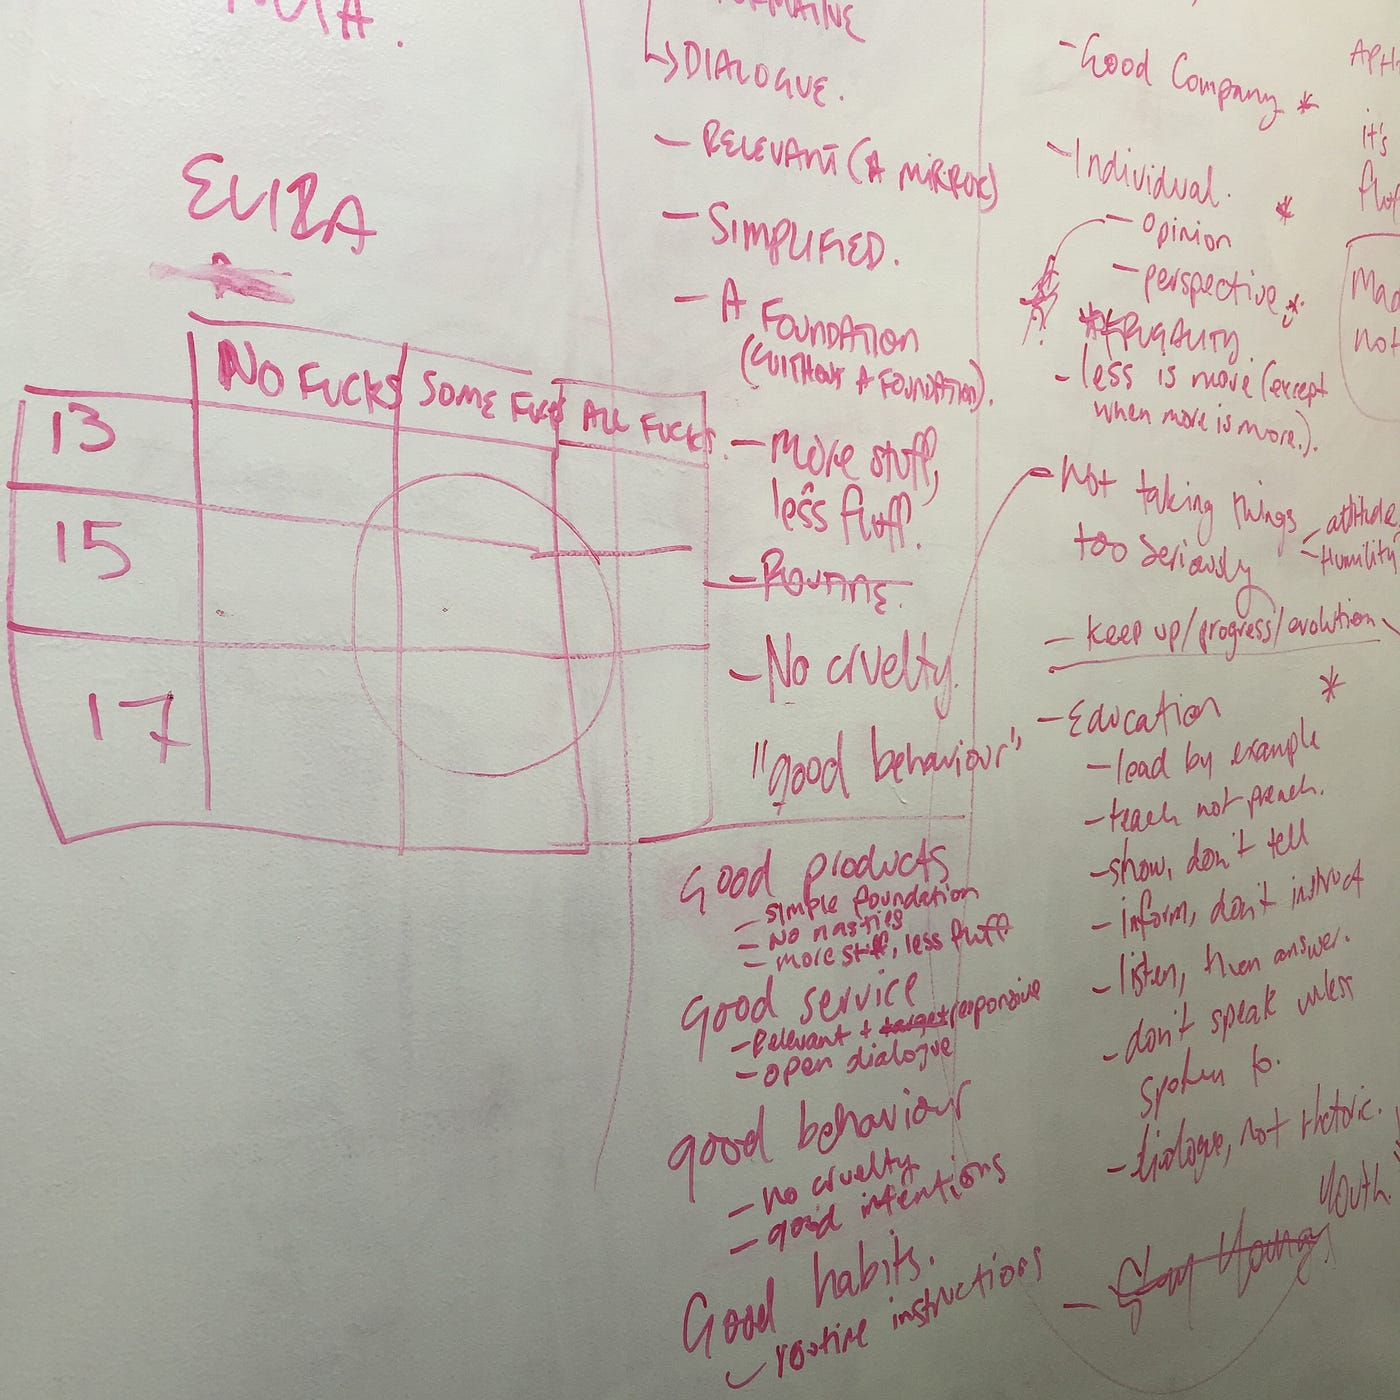 ELIZA
NO FUCKS
SOME FUCKS
ALL FUCKS.
13
15
17
↳ DIALOGUE.
- RELEVANT (A MIRROR)
- SIMPLIFIED.
- A FOUNDATION
(WITHOUT A FOUNDATION).
- more stuff,
less fluff.
- ROUTINE.
- No cruelty.
"good behaviour"
Good products
- simple foundation
- No nasties
- more stuff, less fluff
Good service
- Relevant + target responsive
- open dialogue
good behaviour
- no cruelty
- good intentions
Good habits.
routine instructions
- Good Company *
- Individual.
*
- opinion
- perspective *
- less is more (except
when more is more.).
- Not taking things
too seriously
- attitude
- Humility
- keep up/progress/evolution
- Education *
- lead by example
- teach not preach.
- show, don't tell
- inform, don't instruct
- listen, then answer.
- don't speak unless
spoken to.
- dialogue, not rhetoric.
Youth.
- Stay Young
it's
not